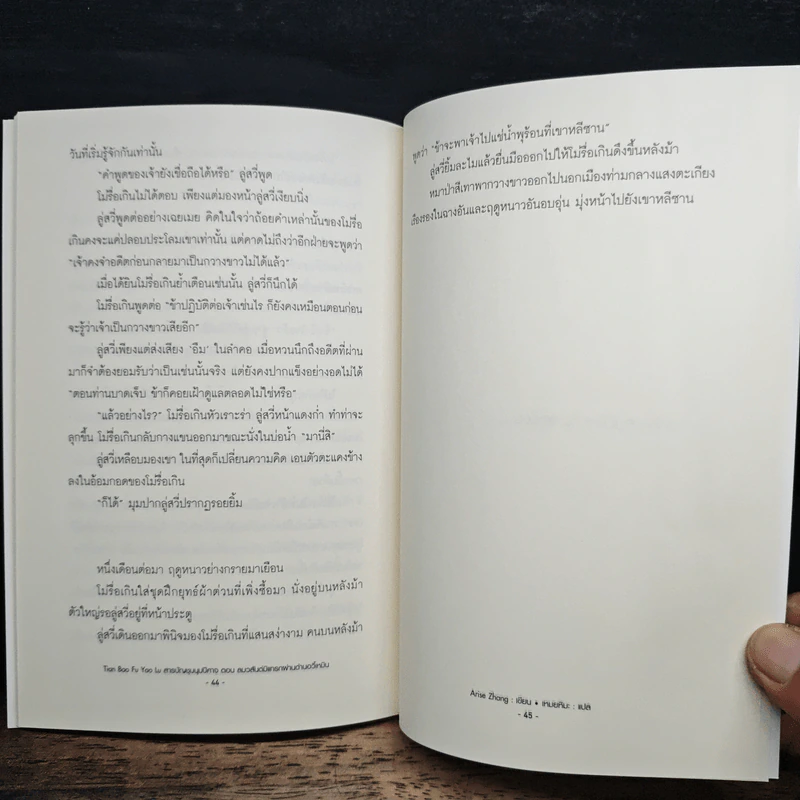 วันที่เริ่มรู้จักกันเท่านั้น
“คำพูดของเจ้ายังเชื่อถือได้หรือ” ลู่สวี่พูด
โม่รื่อเกินไม่ได้ตอบ เพียงแต่มองหน้าลู่สวี่เงียบนิ่ง
ลู่สวี่พูดต่ออย่างเฉยเมย คิดในใจว่าถ้อยคำเหล่านั้นของโม่รื่อ
เกินคงจะแค่ปลอบประโลมเขาเท่านั้น แต่คาดไม่ถึงว่าอีกฝ่ายจะพูดว่า
“เจ้าคงจำอดีตก่อนกลายมาเป็นกวางขาวไม่ได้แล้ว”
เมื่อได้ยินโม่รื่อเกินย้ำเตือนเช่นนั้น ลู่สวี่ก็นึกได้
โม่รื่อเกินพูดต่อ “ข้าปฏิบัติต่อเจ้าเช่นไร ก็ยังคงเหมือนตอนก่อน
จะรู้ว่าเจ้าเป็นกวางขาวเสียอีก”
ลู่สวี่เพียงแต่ส่งเสียง ‘อืม’ ในลำคอ เมื่อหวนนึกถึงอดีตที่ผ่าน
มาก็จำต้องยอมรับว่าเป็นเช่นนั้นจริง แต่ยังคงปากแข็งอย่างอดไม่ได้
“ตอนท่านบาดเจ็บ ข้าก็คอยเฝ้าดูแลตลอดไม่ใช่หรือ”
“แล้วอย่างไร?” โม่รื่อเกินหัวเราะร่า ลู่สวี่หน้าแดงก่ำ ทำท่าจะ
ลุกขึ้น โม่รื่อเกินกลับกางแขนออกมาขณะนั่งในบ่อน้ำ “มานี่สิ”
ลู่สวี่เหลือบมองเขา ในที่สุดก็เปลี่ยนความคิด เอนตัวตะแคงข้าง
ลงในอ้อมกอดของโม่รื่อเกิน
“ก็ได้” มุมปากลู่สวี่ปรากฏรอยยิ้ม
หนึ่งเดือนต่อมา ฤดูหนาวย่างกรายมาเยือน
โม่รื่อเกินใส่ชุดฝึกยุทธ์ผ้าต่วนที่เพิ่งซื้อมา นั่งอยู่บนหลังม้า
ตัวใหญ่รอลู่สวี่อยู่ที่หน้าประตู
ลู่สวี่เดินออกมาพินิจมองโม่รื่อเกินที่แสนสง่างาม คนบนหลังม้า
Tian Bao Fu Yao Lu สารบัญชุมนุมปีศาจ ตอน ลมวสันต์มิแทรกผ่านด่านอวี้เหมิน
- 44 -
พูดว่า “ข้าจะพาเจ้าไปแช่น้ำพุร้อนที่เขาหลีซาน”
ลู่สวี่ยิ้มละไมแล้วยื่นมือออกไปให้โม่รื่อเกินดึงขึ้นหลังม้า
หมาป่าสีเทาพากวางขาวออกไปนอกเมืองท่ามกลางแสงตะเกียง
เรืองรองในฉางอันและฤดูหนาวอันอบอุ่น มุ่งหน้าไปยังเขาหลีซาน
Arise Zhang : เขียน ♦ เหมยสี่ฤดู : แปล
- 45 -